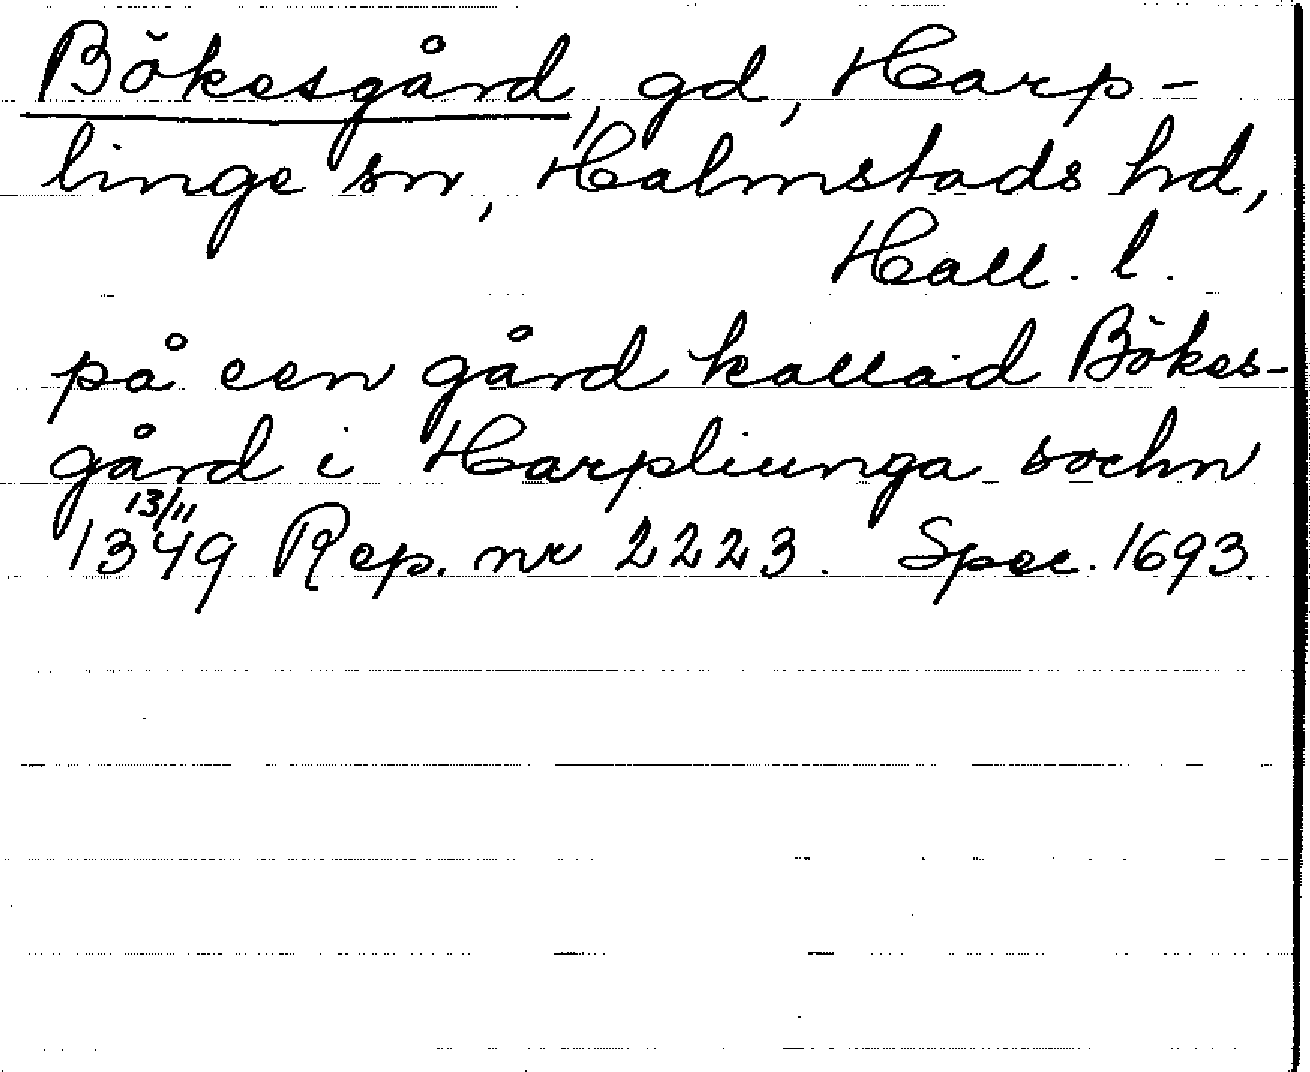 Bökesgård, gd, Harp-
linge sn, Halmstads hd,
Hall. l.
på een gård kallad Bökes-
gård i Harpliunga sochn
13/11
1349 Rep. nr 2223. Spec. 1693.